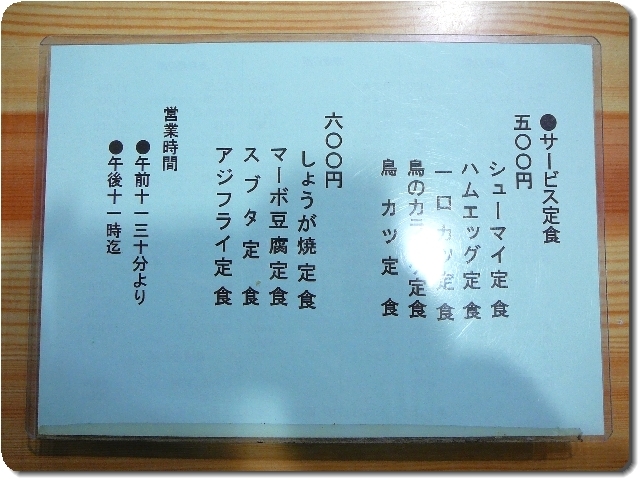 ●サービス定食
五〇〇円
シューマイ定食
ハムエッグ定食
一口カツ定食
鳥のカ 定食
鳥カツ定食
六〇〇円
しょうが焼定食
マーボ豆腐定食
スブタ定食
アジフライ定食
営業時間
●午前十一三十分より
●午後十一時迄